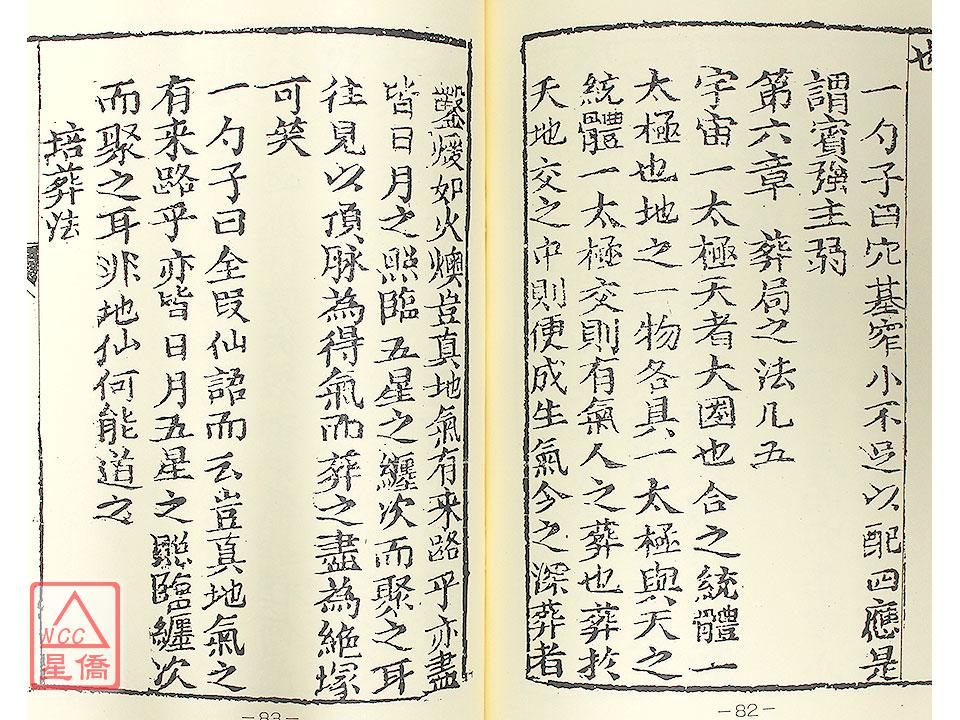 也
一勺子曰穴基窄小不足以配四應是
謂賓強主弱
第六章 葬局之法凡五
宇宙一太極天者大圈也合之統體一
太極也地之一物各具一太極與天之
統體一太極交則有氣人之葬也葬於
天地交之中則便成生氣今之深葬者
-82-
鑿煖如火燠豈真地氣有来路乎亦盡
皆日月之照臨五星之纏次而聚之耳
往見以頂脉為得氣而葬之盡為絶塚
可笑
一勺子曰全叚仙語而云豈真地氣之
有来路乎亦皆日月五星之照臨纏次
而聚之耳非地仙何能道之
培葬法
-83-
WCC
星僑